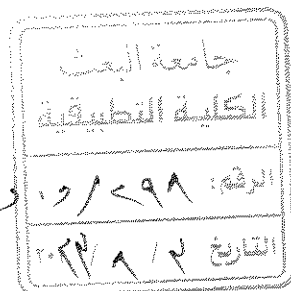 جامعة البعث
الكلية التطبيقية
الرقم: ٢٩٨ / د.ص.د
التاريخ ٢ / ٨ / ٢٠٢٣